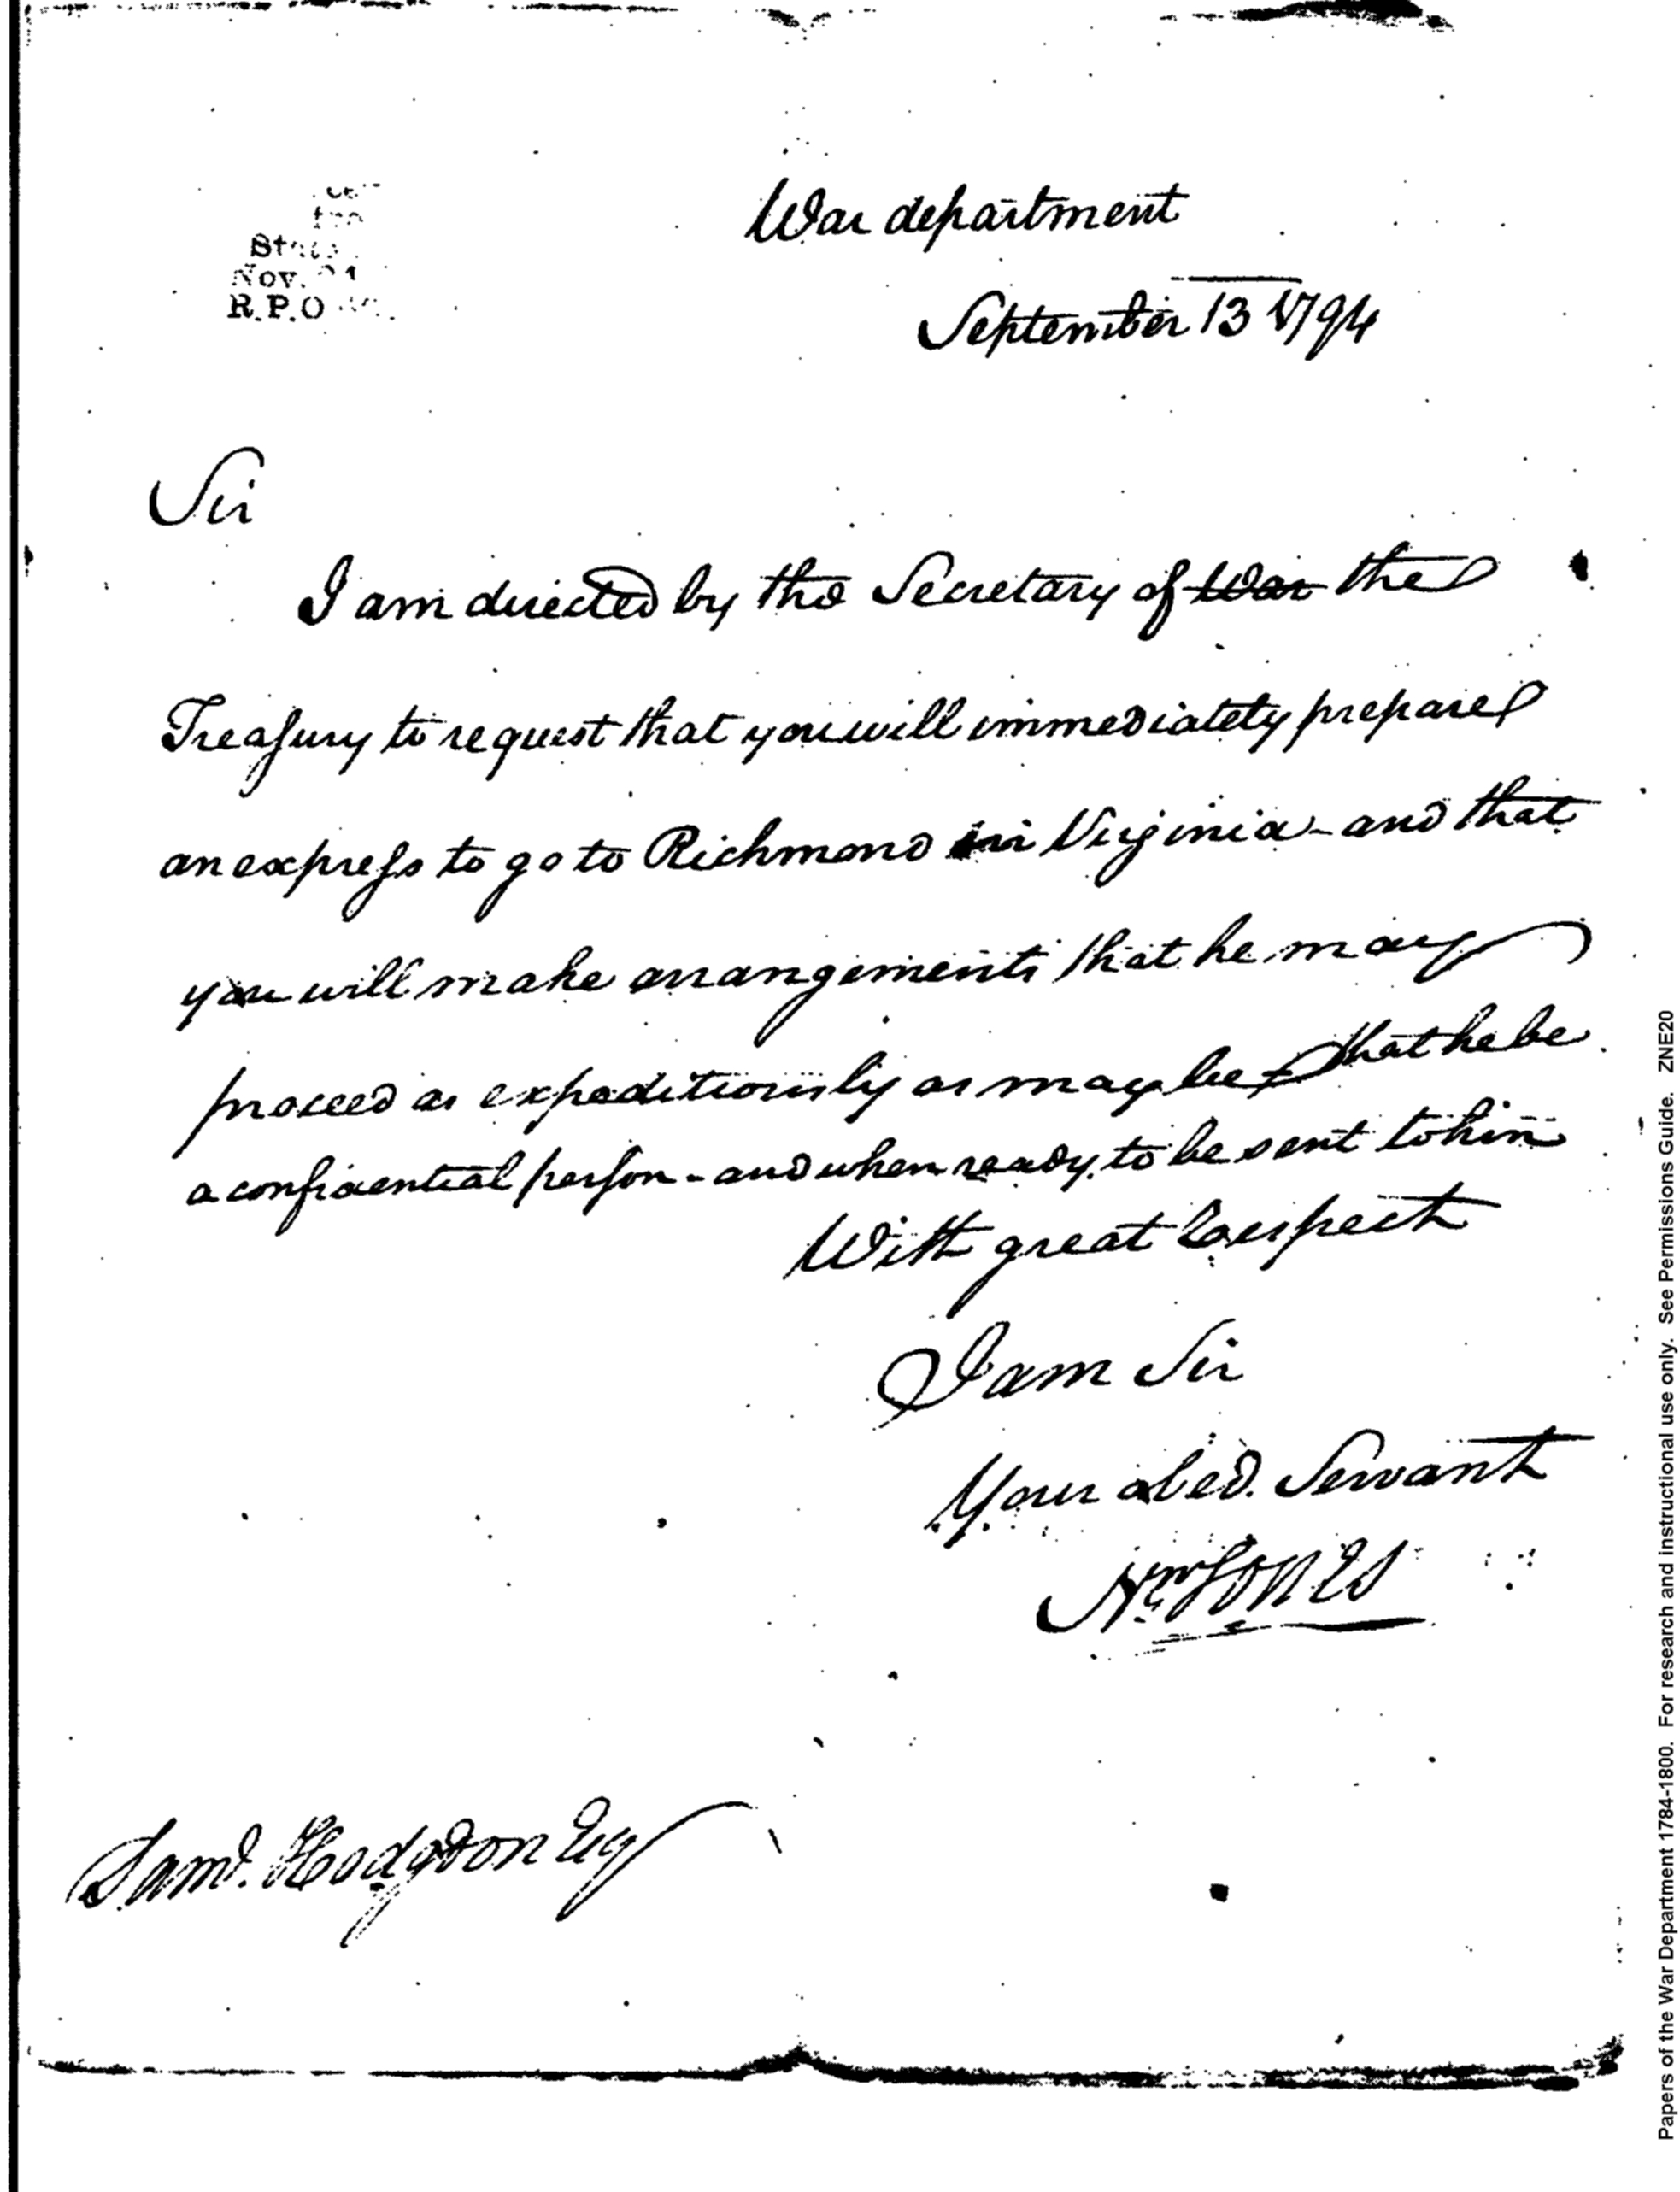 War department
September 13 1794
St
Nov.
R.P.O
Sir
I am directed by the Secretary of War the
Treasury to request that you will immediately prepare
an express to go to Richmond in Virginia - and that
you will make arrangements that he may
proceed as expeditiously as may be & that he be
a confidential person - and when ready to be sent to him
With great Respect
I am Sir
Your obed. Servant
Jones
Saml. Hodgdon Esq
Papers of the War Department 1784-1800. For research and instructional use only. See Permissions Guide. ZNE20